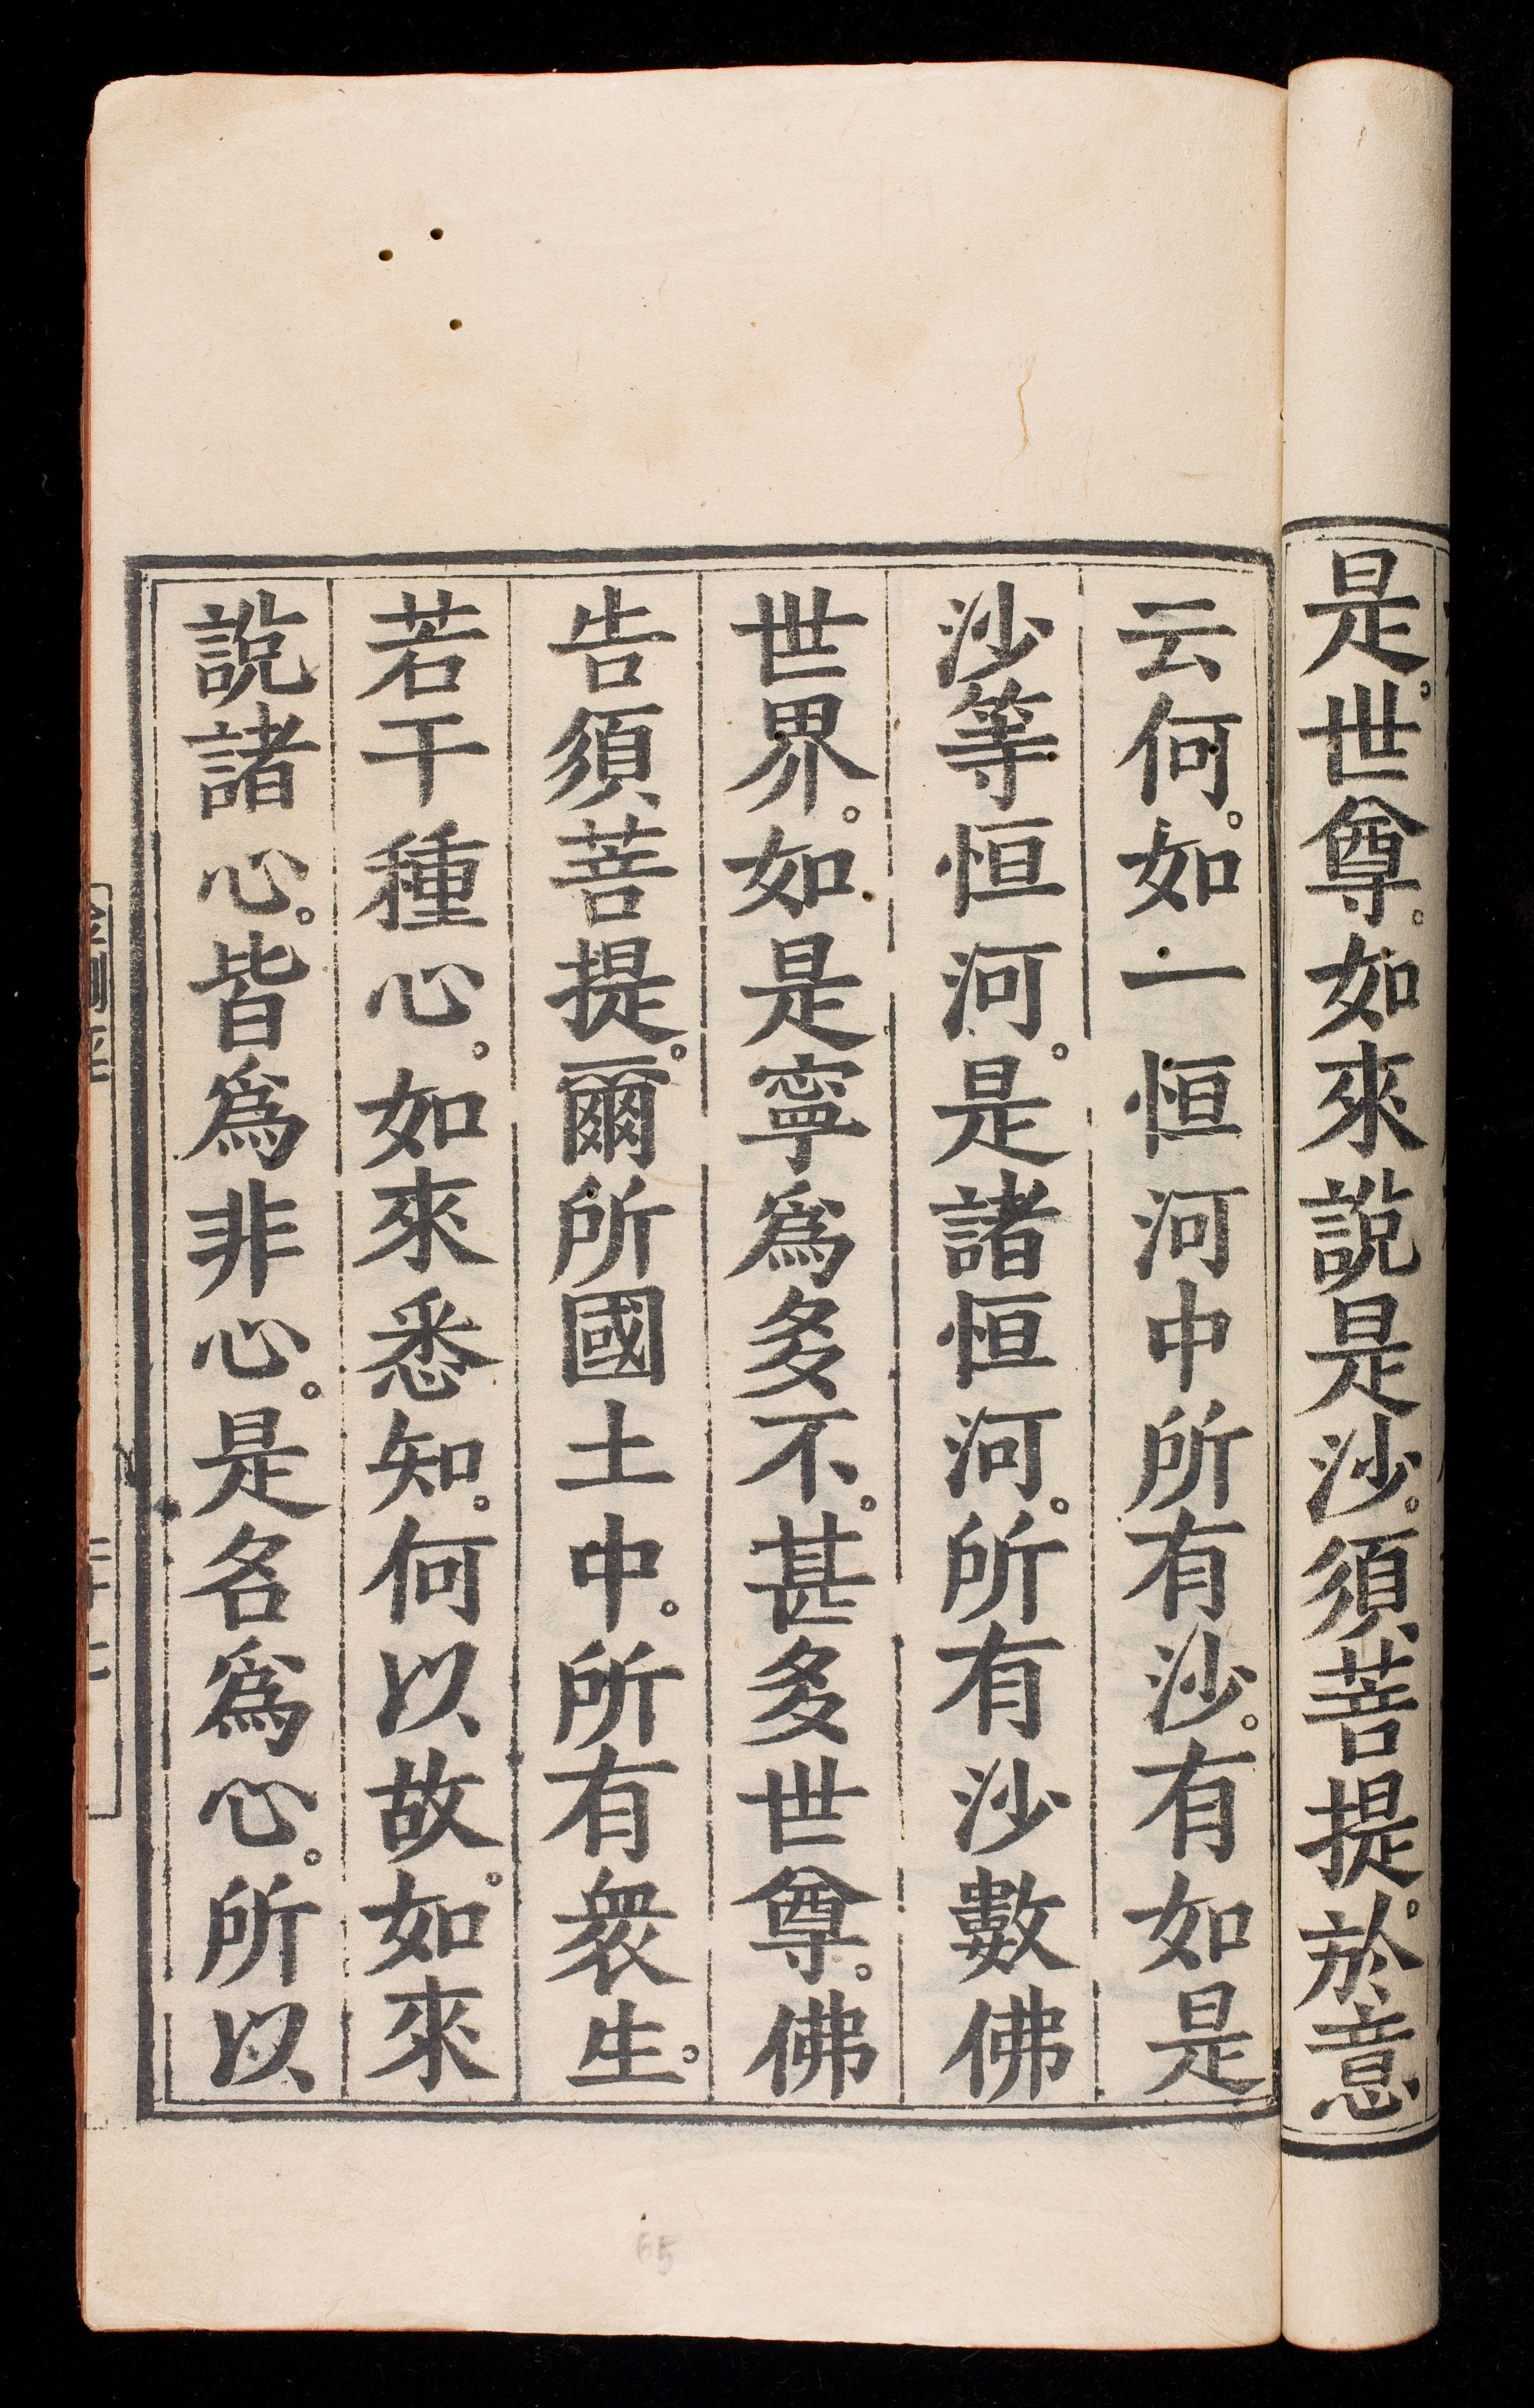 是。世尊。如來說是沙。須菩提。於意
云何。如一恒河中所有沙。有如是
沙等恒河。是諸恒河。所有沙數佛
世界。如是寧爲多不。甚多世尊。佛
告須菩提。爾所國土中。所有衆生。
若干種心。如來悉知。何以故。如來
說諸心。皆爲非心。是名爲心。所以
65